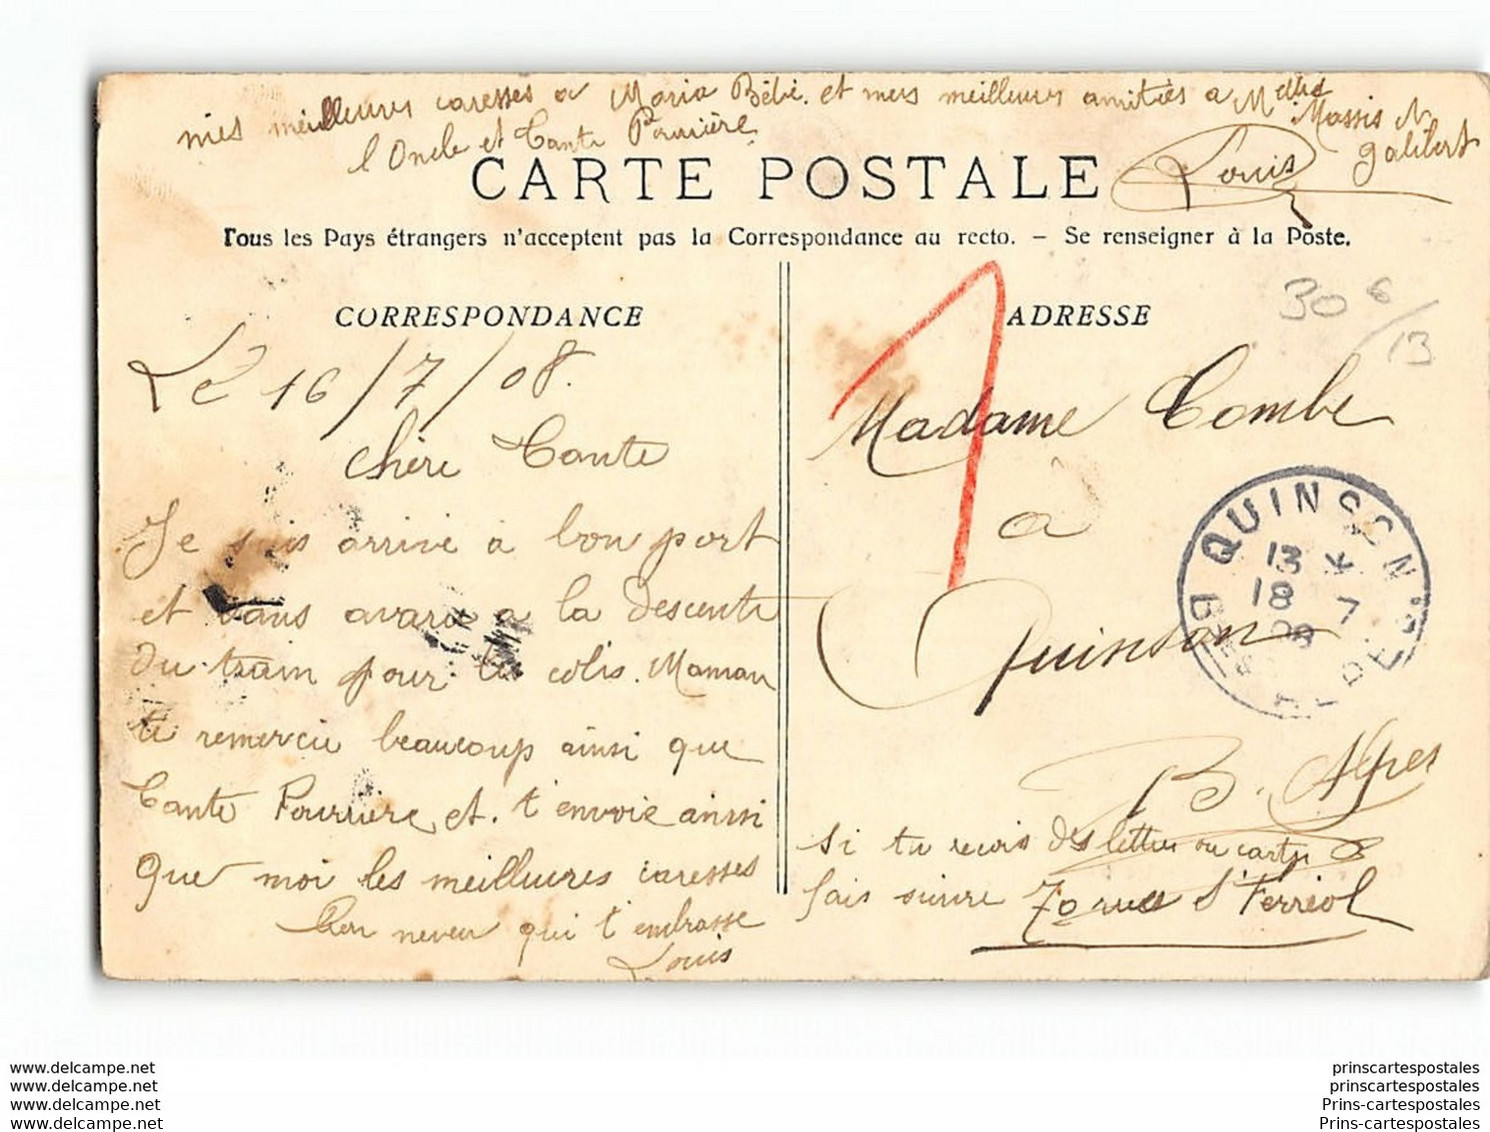 mes meilleures caresses a Maria Bébé. et mes meilleures amitiés a Melles
l Oncle et Tante Pourrière Massis
Louis galibert
CARTE POSTALE
Tous les Pays étrangers n'acceptent pas la Correspondance au recto. – Se renseigner à la Poste.
CORRESPONDANCE
Le 16/7/08.
Chère Tante
Je suis arrivé a bon port
et sans avarie a la descente
du train pour les colis. Maman
te remercie beaucoup ainsi que
Tante Pourrière et. t'envoie ainsi
que moi les meilleures caresses
Ton neveu qui t'embrasse
Louis
ADRESSE
30 6/13
Madame Combe
a
Quinson
B. Alpes
Si tu reçois des lettres ou cartes
fais suivre 70 rue St Ferréol
QUINSON
13 *
18 7
08
www.delcampe.net
www.delcampe.net
www.delcampe.net
www.delcampe.net
prinscartespostales
prinscartespostales
Prins-cartespostales
Prins-cartespostales